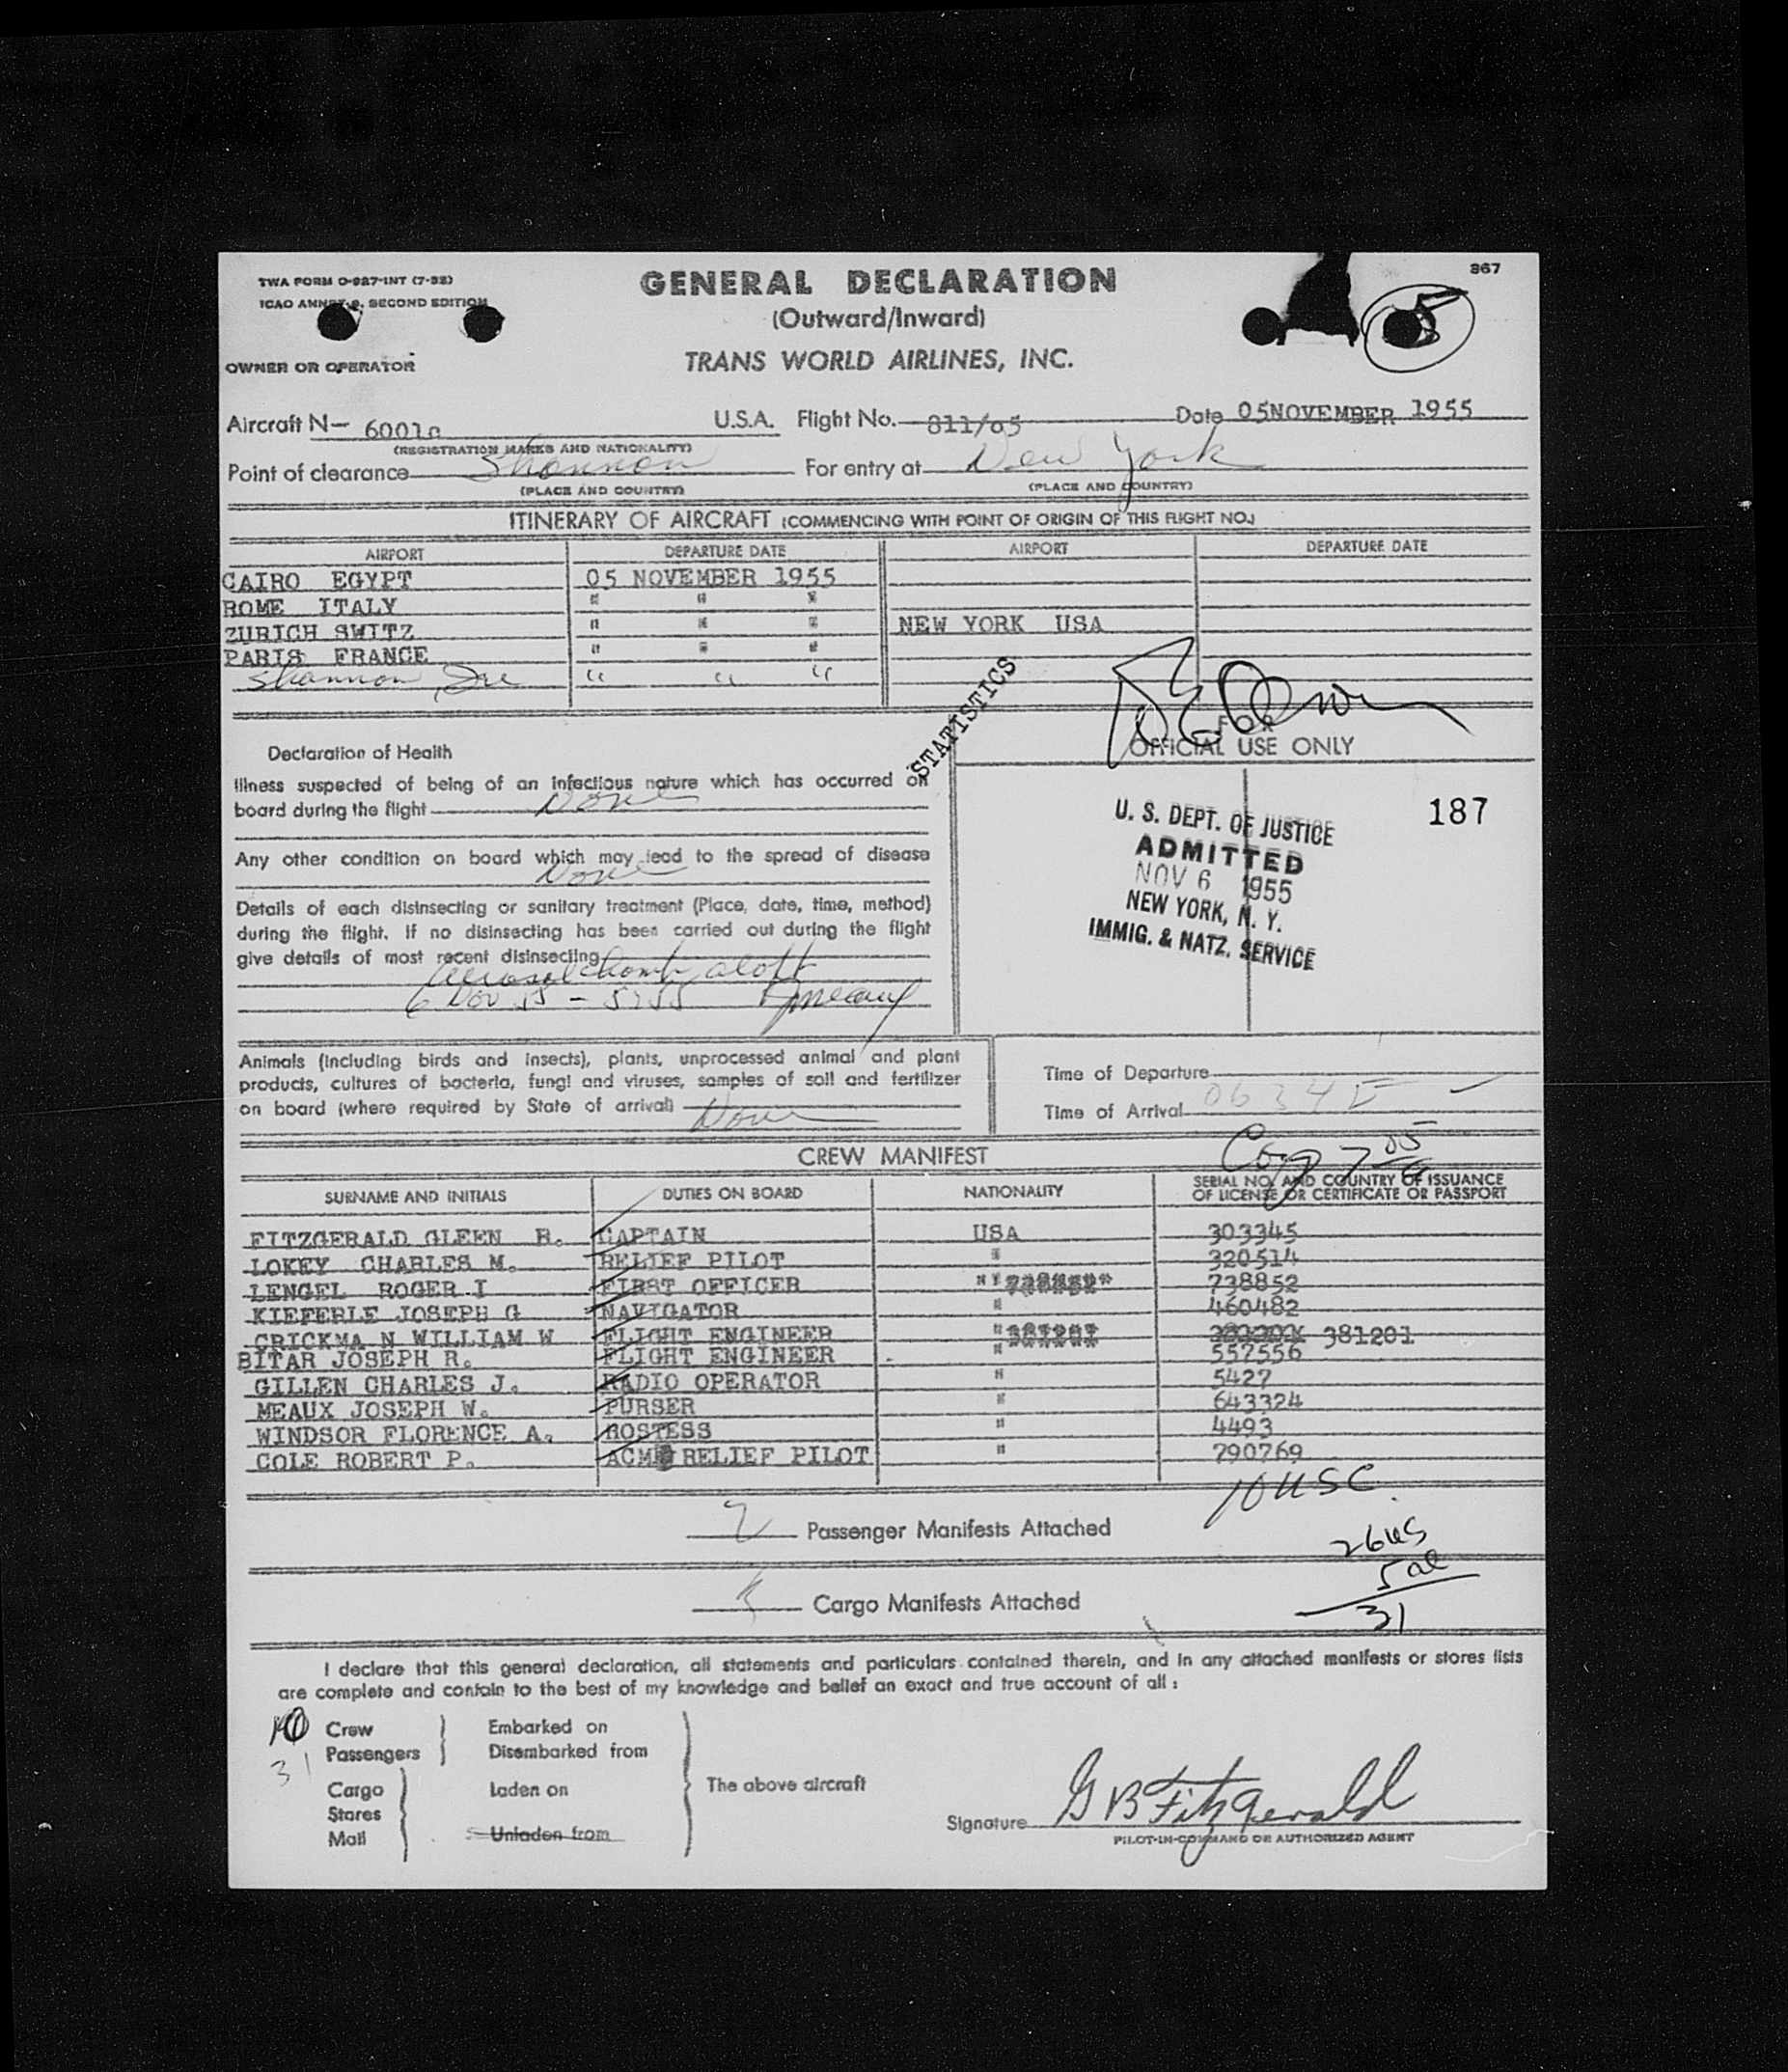 TWA FORM O-927-INT (7-52) 367
ICAO ANNEX 9, SECOND EDITION
GENERAL DECLARATION
(Outward/Inward)
TRANS WORLD AIRLINES, INC.
OWNER OR OPERATOR
Aircraft N- 6001 U.S.A. Flight No. 811/05 Date 05NOVEMBER 1955
(REGISTRATION MARKS AND NATIONALITY)
Point of clearance Shannon For entry at New York
(PLACE AND COUNTRY) (PLACE AND COUNTRY)
ITINERARY OF AIRCRAFT (COMMENCING WITH POINT OF ORIGIN OF THIS FLIGHT NO.)
AIRPORT DEPARTURE DATE AIRPORT DEPARTURE DATE
CAIRO EGYPT 05 NOVEMBER 1955
ROME ITALY " " "
ZURICH SWITZ " " " NEW YORK USA
PARIS FRANCE " " "
Shannon, Ire " " "
STATISTICS
FOR
OFFICIAL USE ONLY
Declaration of Health
Illness suspected of being of an infectious nature which has occurred on
board during the flight None
Any other condition on board which may lead to the spread of disease
None
Details of each disinsecting or sanitary treatment (Place, date, time, method)
during the flight. If no disinsecting has been carried out during the flight
give details of most recent disinsecting
aerosol bomb aloft
6 Nov 55 -
187
U. S. DEPT. OF JUSTICE
ADMITTED
NOV 6 1955
NEW YORK, N. Y.
IMMIG. & NATZ. SERVICE
Animals (including birds and insects), plants, unprocessed animal and plant
products, cultures of bacteria, fungi and viruses, samples of soil and fertilizer
on board (where required by State of arrival) None
Time of Departure
Time of Arrival 0634 E
CREW MANIFEST
SURNAME AND INITIALS DUTIES ON BOARD NATIONALITY SERIAL NO. AND COUNTRY OF ISSUANCE
OF LICENSE OR CERTIFICATE OR PASSPORT
FITZGERALD GLEEN B. CAPTAIN USA 303345
LOKEY CHARLES M. RELIEF PILOT " 320514
LENGEL ROGER I FIRST OFFICER " 738852
KIEFERLE JOSEPH G NAVIGATOR " 460482
CRICKMA N WILLIAM W FLIGHT ENGINEER " 381201
BITAR JOSEPH R. FLIGHT ENGINEER " 557556
GILLEN CHARLES J. RADIO OPERATOR " 5427
MEAUX JOSEPH W. PURSER " 643324
WINDSOR FLORENCE A. HOSTESS " 4493
COLE ROBERT P. ACM RELIEF PILOT " 790769
10 USC
2 Passenger Manifests Attached
26 US
5 al
31
Cargo Manifests Attached
I declare that this general declaration, all statements and particulars contained therein, and in any attached manifests or stores lists
are complete and contain to the best of my knowledge and belief an exact and true account of all :
10 Crew Embarked on
31 Passengers Disembarked from
Cargo Laden on The above aircraft
Stores
Mail Unladen from
Signature G B Fitzgerald
PILOT-IN-COMMAND OR AUTHORIZED AGENT